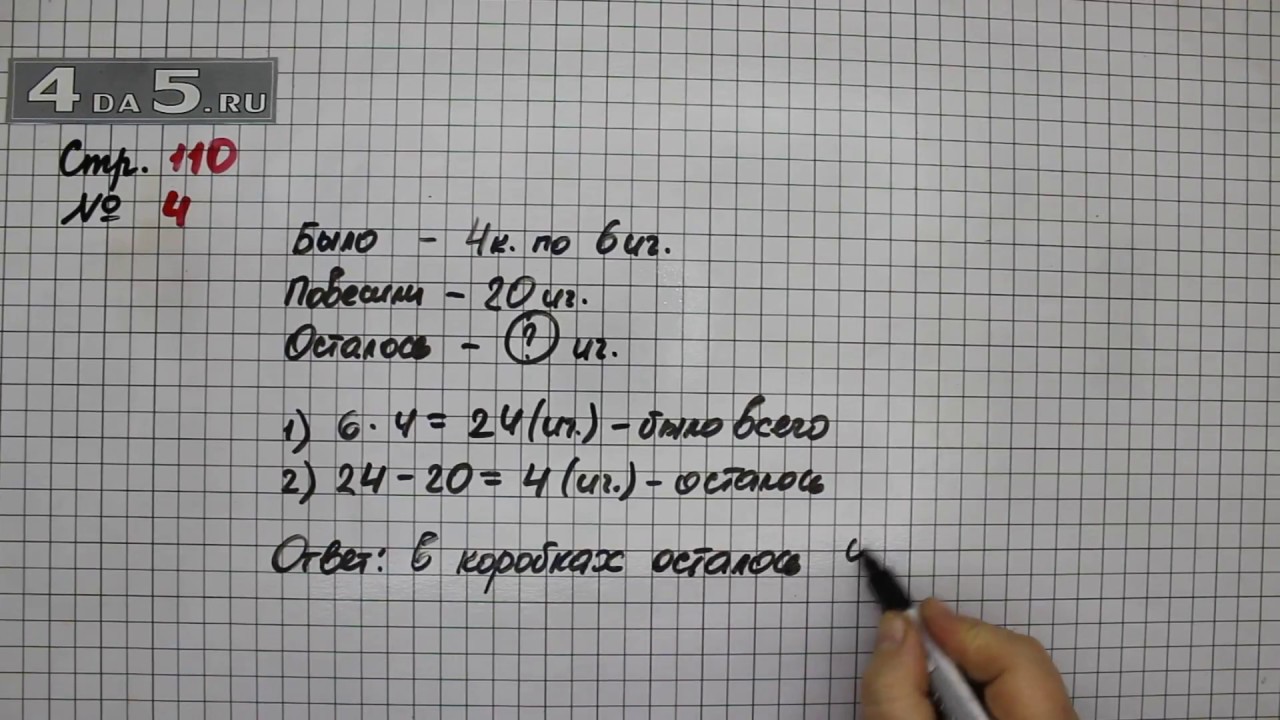 4DA5.RU
Стр. 110
№ 4
Было - 4к. по 6 иг.
Повесили - 20 иг.
Осталось - ? иг.
1) 6 · 4 = 24 (иг.) - было всего
2) 24 - 20 = 4 (иг.) - осталось
Ответ: в коробках осталось 4